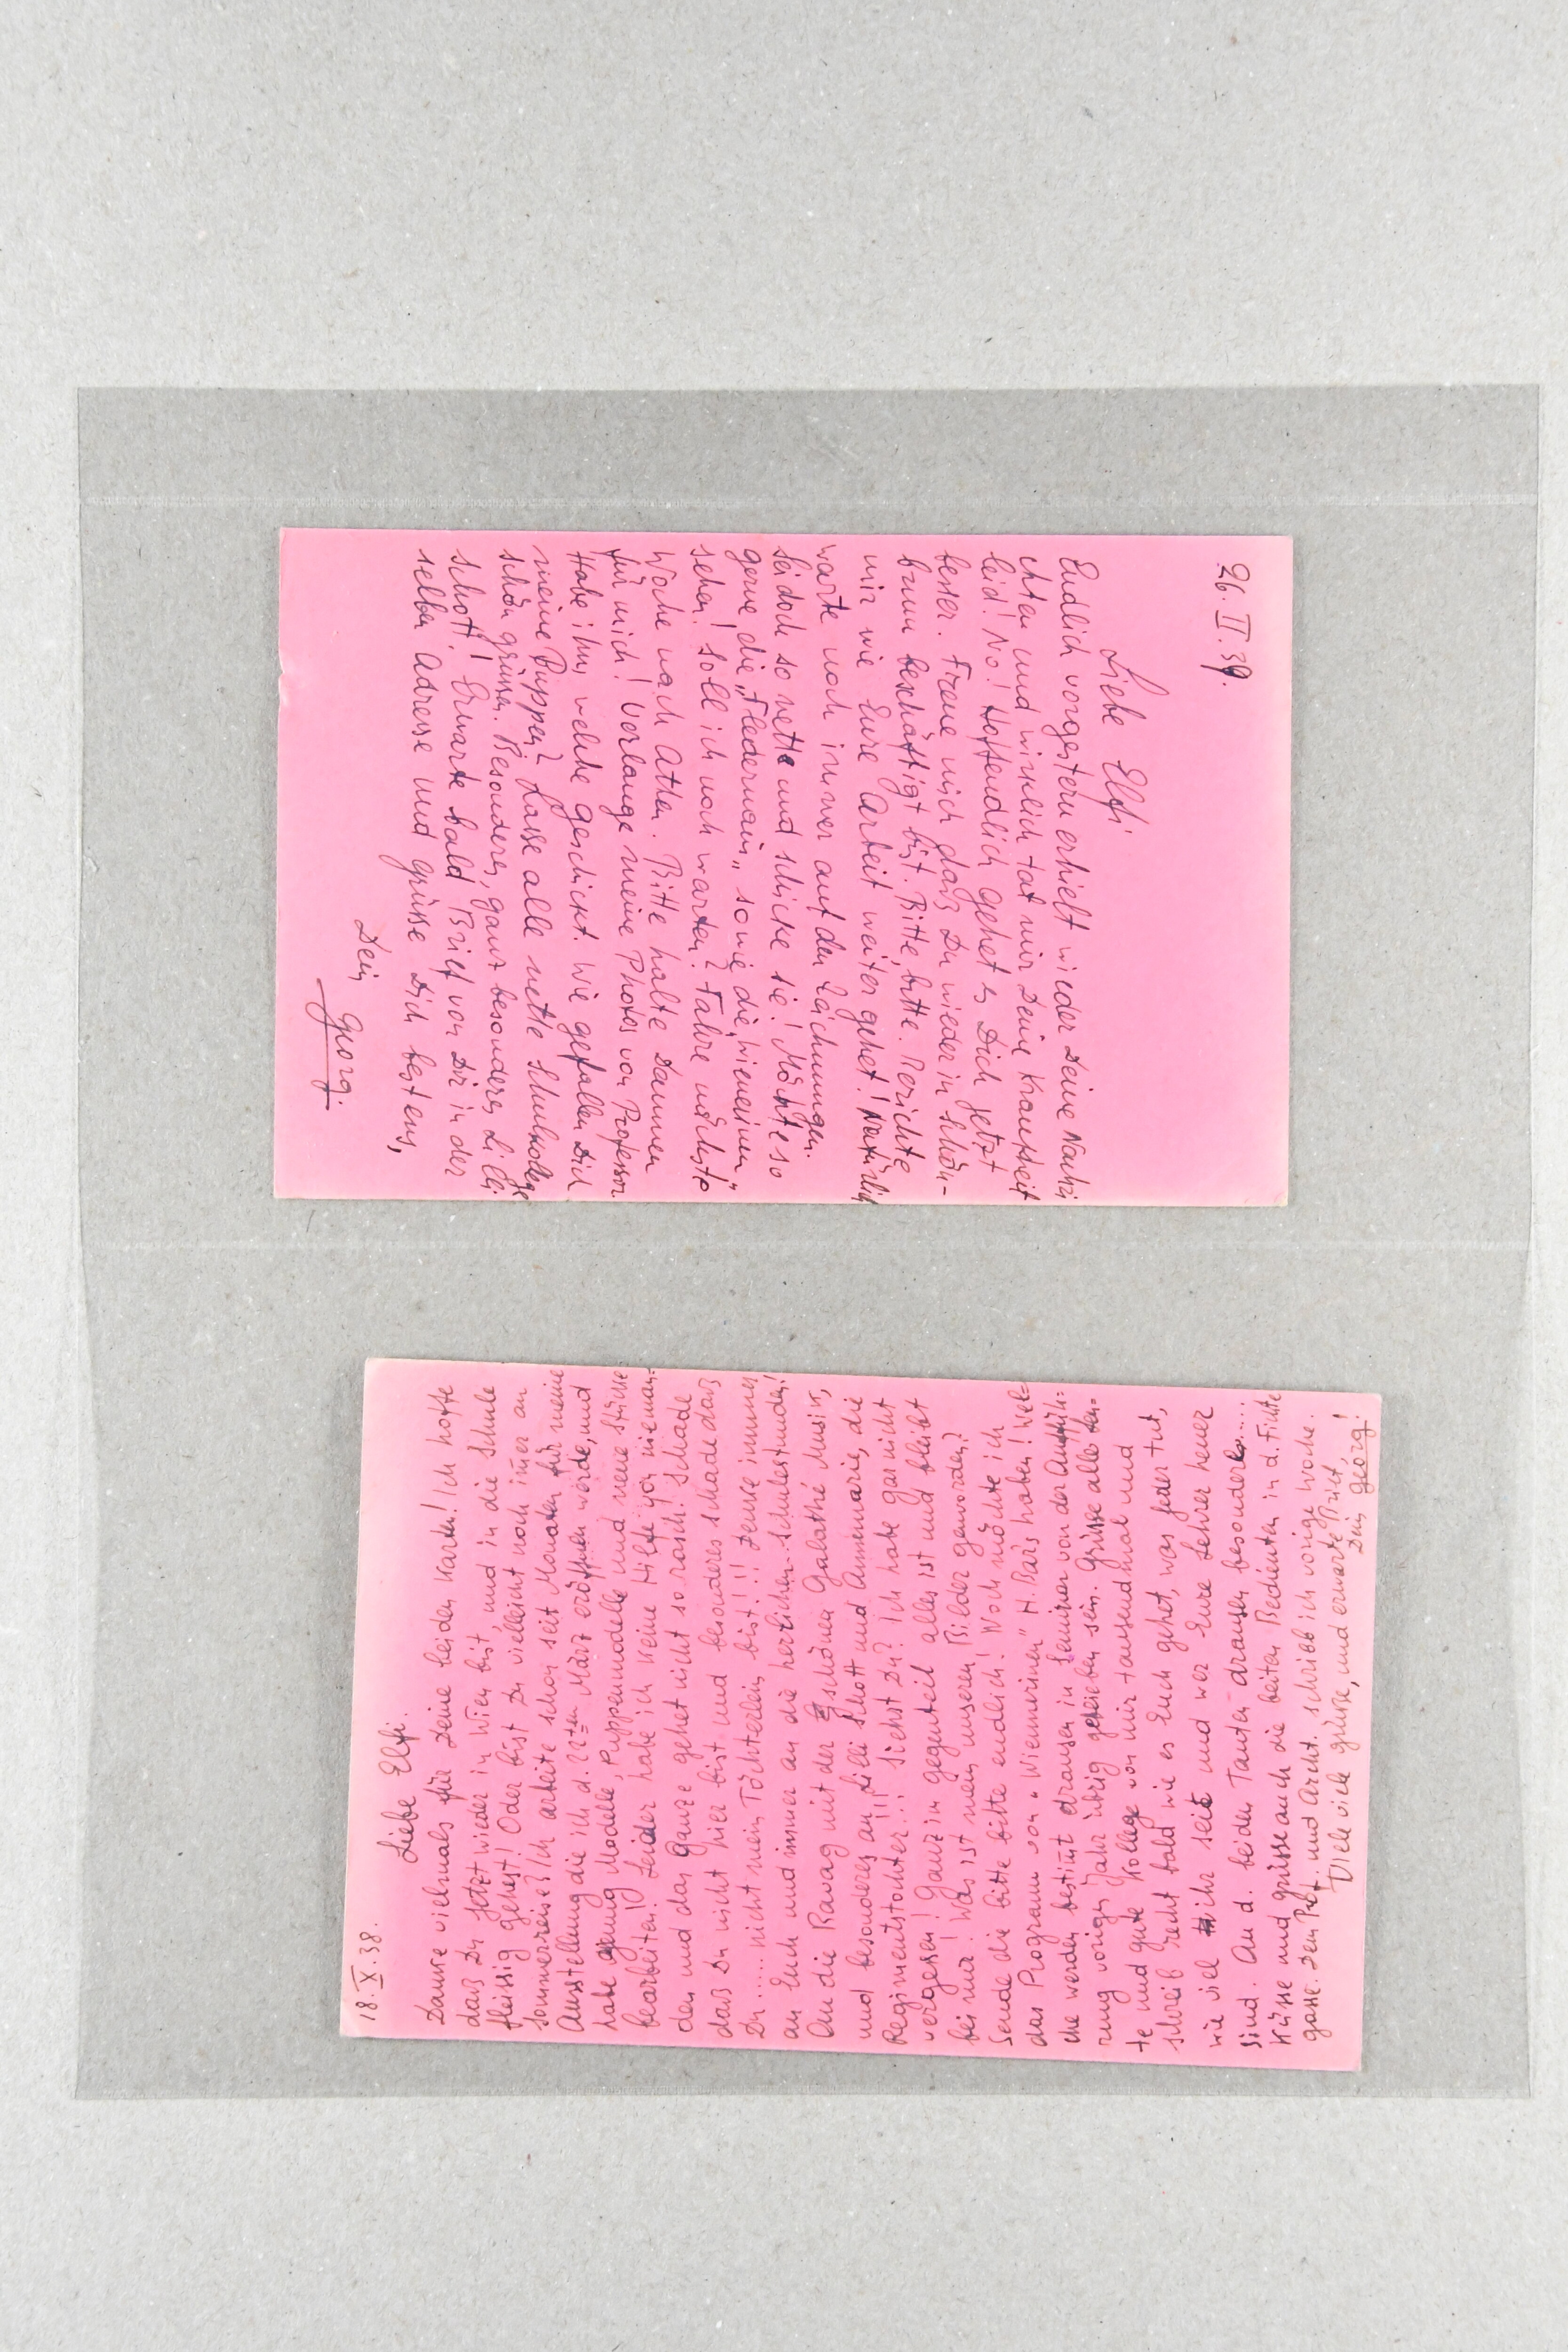 26. II. 39.
Liebe Elfi
Endlich vorgestern erhielt wieder Deine Nachri
chten und wirklich tat mir Deine Krankheit
leid! No! Hoffendlich gehet es Dich jetzt
besser. Freue mich daß Du wieder in Schön-
brunn beschäftigt bist. Bitte, bitte. Berichte
mir wie Eure Arbeit weiter gehet! Natürlich
warte noch immer auf den Zeichnungen.
Sei doch so nette und schicke sie! Möchte so
gerne die „Fledermaus„ sowie die „Wienerinnen„
sehen! Soll ich noch warten? Fahre nächste
Woche nach Athen. Bitte halte Daumen
für mich! Verlange meine Photos von Professor
Habe ihm welche geschickt. Wie gefallen Dich
meine Puppen? Lasse alle nette Schulkollege
schön grüßen. Besonderes, ganz besonderes Lilli
Schott! Erwarte bald Brief von Dir in der
selben Adresse und grüsse Dich bestens,
Dein
Georg.
18. X. 38.
Liebe Elfi.
Danke vielmals für Deine beiden Karten! Ich hoffe
daß Du jetzt wieder in Wien bist, und in die Schule
fleissig gehest! Oder bist Du vielleicht noch imer an
Sommerreise? Ich arbeite schon seit Monaten für meine
Ausstellung die ich d. 22ten März eröffnen werde, und
habe genug Modelle, Puppenmodelle und neue Stücke
bearbeiten. Leider habe ich keine Hilfe von nieman-
den und das Ganze gehet nicht so rasch! Schade
daß Du nicht hier bist und besonderes schade daß
Du ..... nicht mein Töchterlein bist!!! Denke immer
an Euch und immer an die herlichen Schulestunden!
An die Ravag mit der schönen Galathé Musik,
und besonderes an Lilli Schott und Annemarie, die
Regimentstochter!!! Siehst Du? Ich habe gar nicht
vergessen! Ganz im gegenteil alles ist und bleibt
bei mir! Was ist mein unseren Bilder geworden?
Sende die bitte bitte endlich! Noch möchte ich
das Programm von „Wienerinnen" H. Bars haben! Wel=
che werden bestimt drausen in Seminer von der Auffüh:
rung vorigen Jahr übrig geblieben sein. Grüsse alle
te und gute Kollege von mir tausendmal und
schreib recht bald wie es Euch gehet, was jeder tut,
wie viel ihr seit und wer Eure Lehrer heuer
sind. An d. beiden Tanten drausen besonderes....
Küsse und grüsse auch die beiten Bedienten in d. Fichte
gasse. Dem Prof. und Archt. schrieb ich vorige Woche.
Viele viele grüsse, und erwarte Brief,
Dein
Georg!